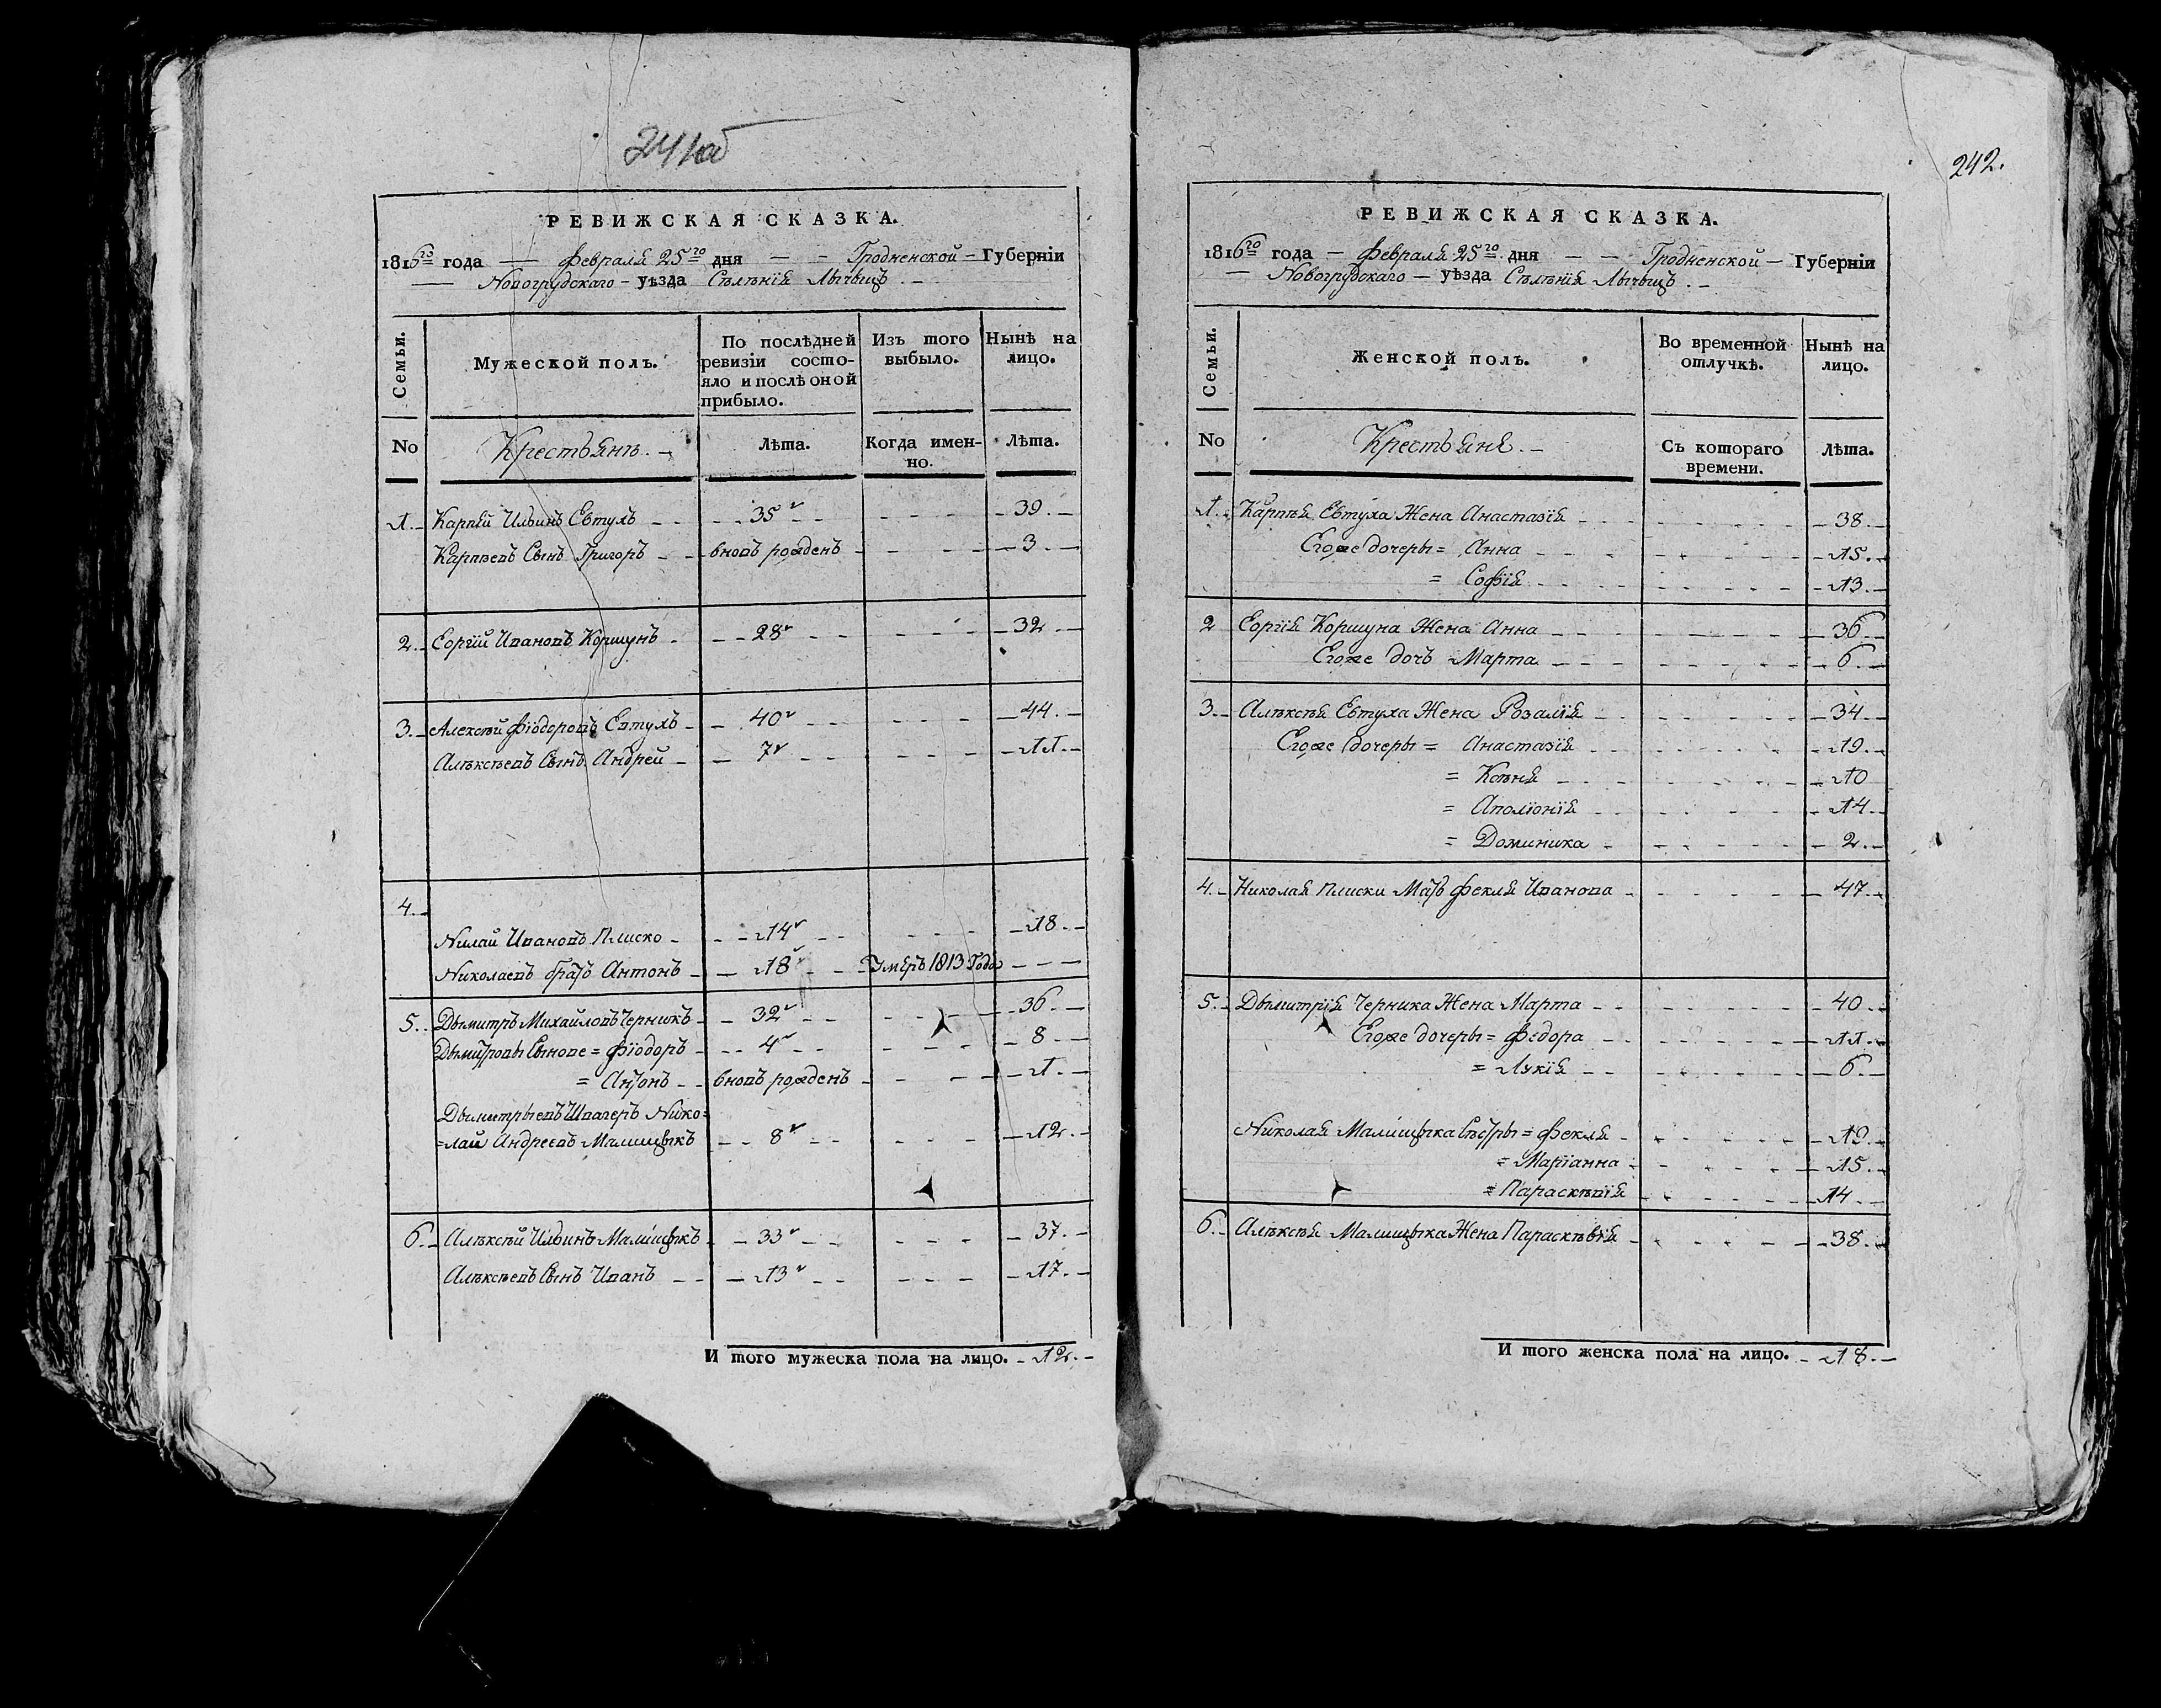 241об
РЕВИЖСКАЯ СКАЗКА.
1816го года — Февраля 25го дня — — Гродненской — Губерніи
— Новогрудскаго — уѣзда Сѣлѣнія Лычыцъ. —
Семьи.
Мужеской полъ.
По послѣдней ревизіи состо-
яло и послѣ оной прибыло.
Изъ того выбыло.
Нынѣ на лицо.
No
Крестьянъ. —
Лѣта.
Когда имен-
но.
Лѣта.
1. Карпѣй Ильинъ Евтухъ 35 39
Карпѣевъ Сынъ Григоръ вновъ рожденъ 3
2. Еоргій Ивановъ Коршунъ 28 32
3. Алексѣй Фіодоровъ Евтухъ 40 44
Алѣксѣевъ Сынъ Андрей 7 11
4.
Нилай Ивановъ Плиско 14 18
Николаевъ братъ Антонъ 18 Умеръ 1813 Года
5. Дымитръ Михайловъ Черникъ 32 36
Дымитровы Сынове = Фіодоръ 4 8
= Антонъ вновъ рожденъ 1
Дымитрыевъ Швагеръ Нико=
=лай Андреевъ Малишыкъ 8 12
6. Алѣксѣй Ильинъ Малишыкъ 33 37
Алѣксѣевъ Сынъ Иванъ 13 17
И того мужеска пола на лицо. 12.
242.
РЕВИЖСКАЯ СКАЗКА.
1816го года — Февраля 25го дня — — Гродненской — Губерніи
— Новогрудскаго — уѣзда Сѣлѣнія Лычыцъ. —
Семьи.
Женской полъ.
Во временной отлучкѣ.
Нынѣ на лицо.
No
Крестьяне. —
Съ котораго времени.
Лѣта.
1. Карпѣя Евтуха Жена Анастазія 38
Егоже дочеры = Анна 15
= Софія 13
2 Еоргія Коршуна Жена Анна 36
Егоже дочъ Марта 6
3. Алѣксѣя Евтуха Жена Розалія 34
Егоже дочеры = Анастазія 19
= Ксѣня 10
= Аполіонія 14
= Доминика 2
4. Николая Плиски Матъ Фекля Иванова 47
5. Дымитрія Черника Жена Марта 40
Егоже дочеры = Федора 11
= Лукія 6
Николая Малишыка Сѣстры = Фекля 19
= Маріанна 15
= Параскѣвія 14
6. Алѣксѣя Малишыка Жена Параскѣвія 38
И того женска пола на лицо. 18.